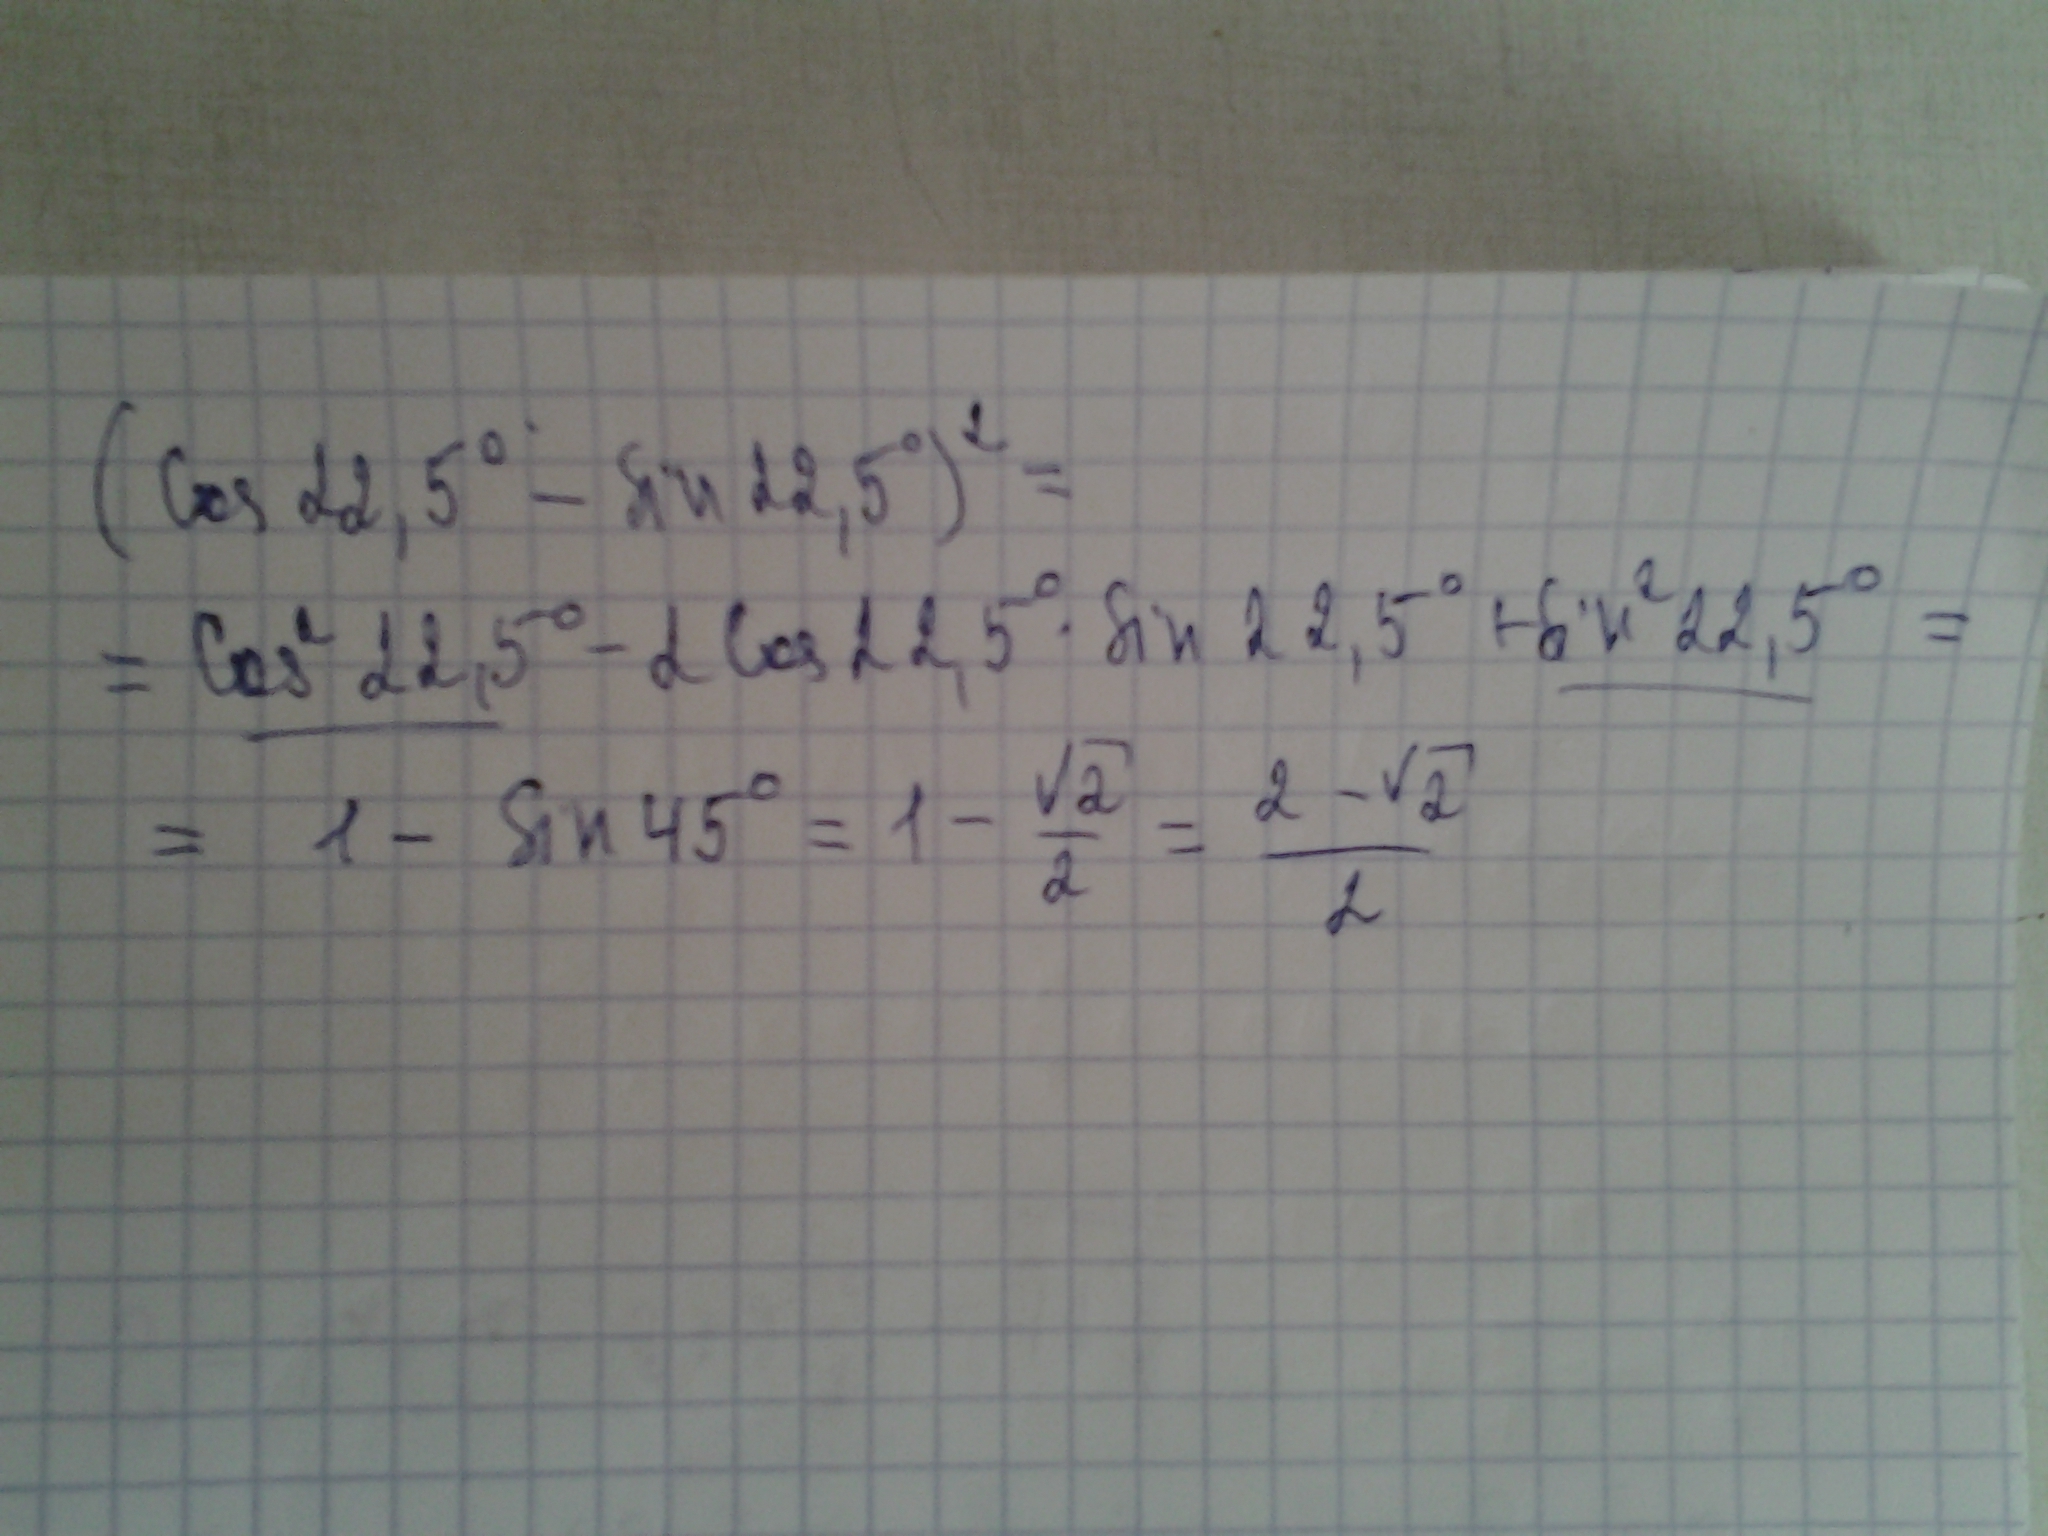 (Cos 22,5° - Sin 22,5°)² =
= Cos² 22,5° - 2 Cos 22,5° · Sin 22,5° + Sin² 22,5° =
= 1 - Sin 45° = 1 - √2/2 = (2 - √2)/2